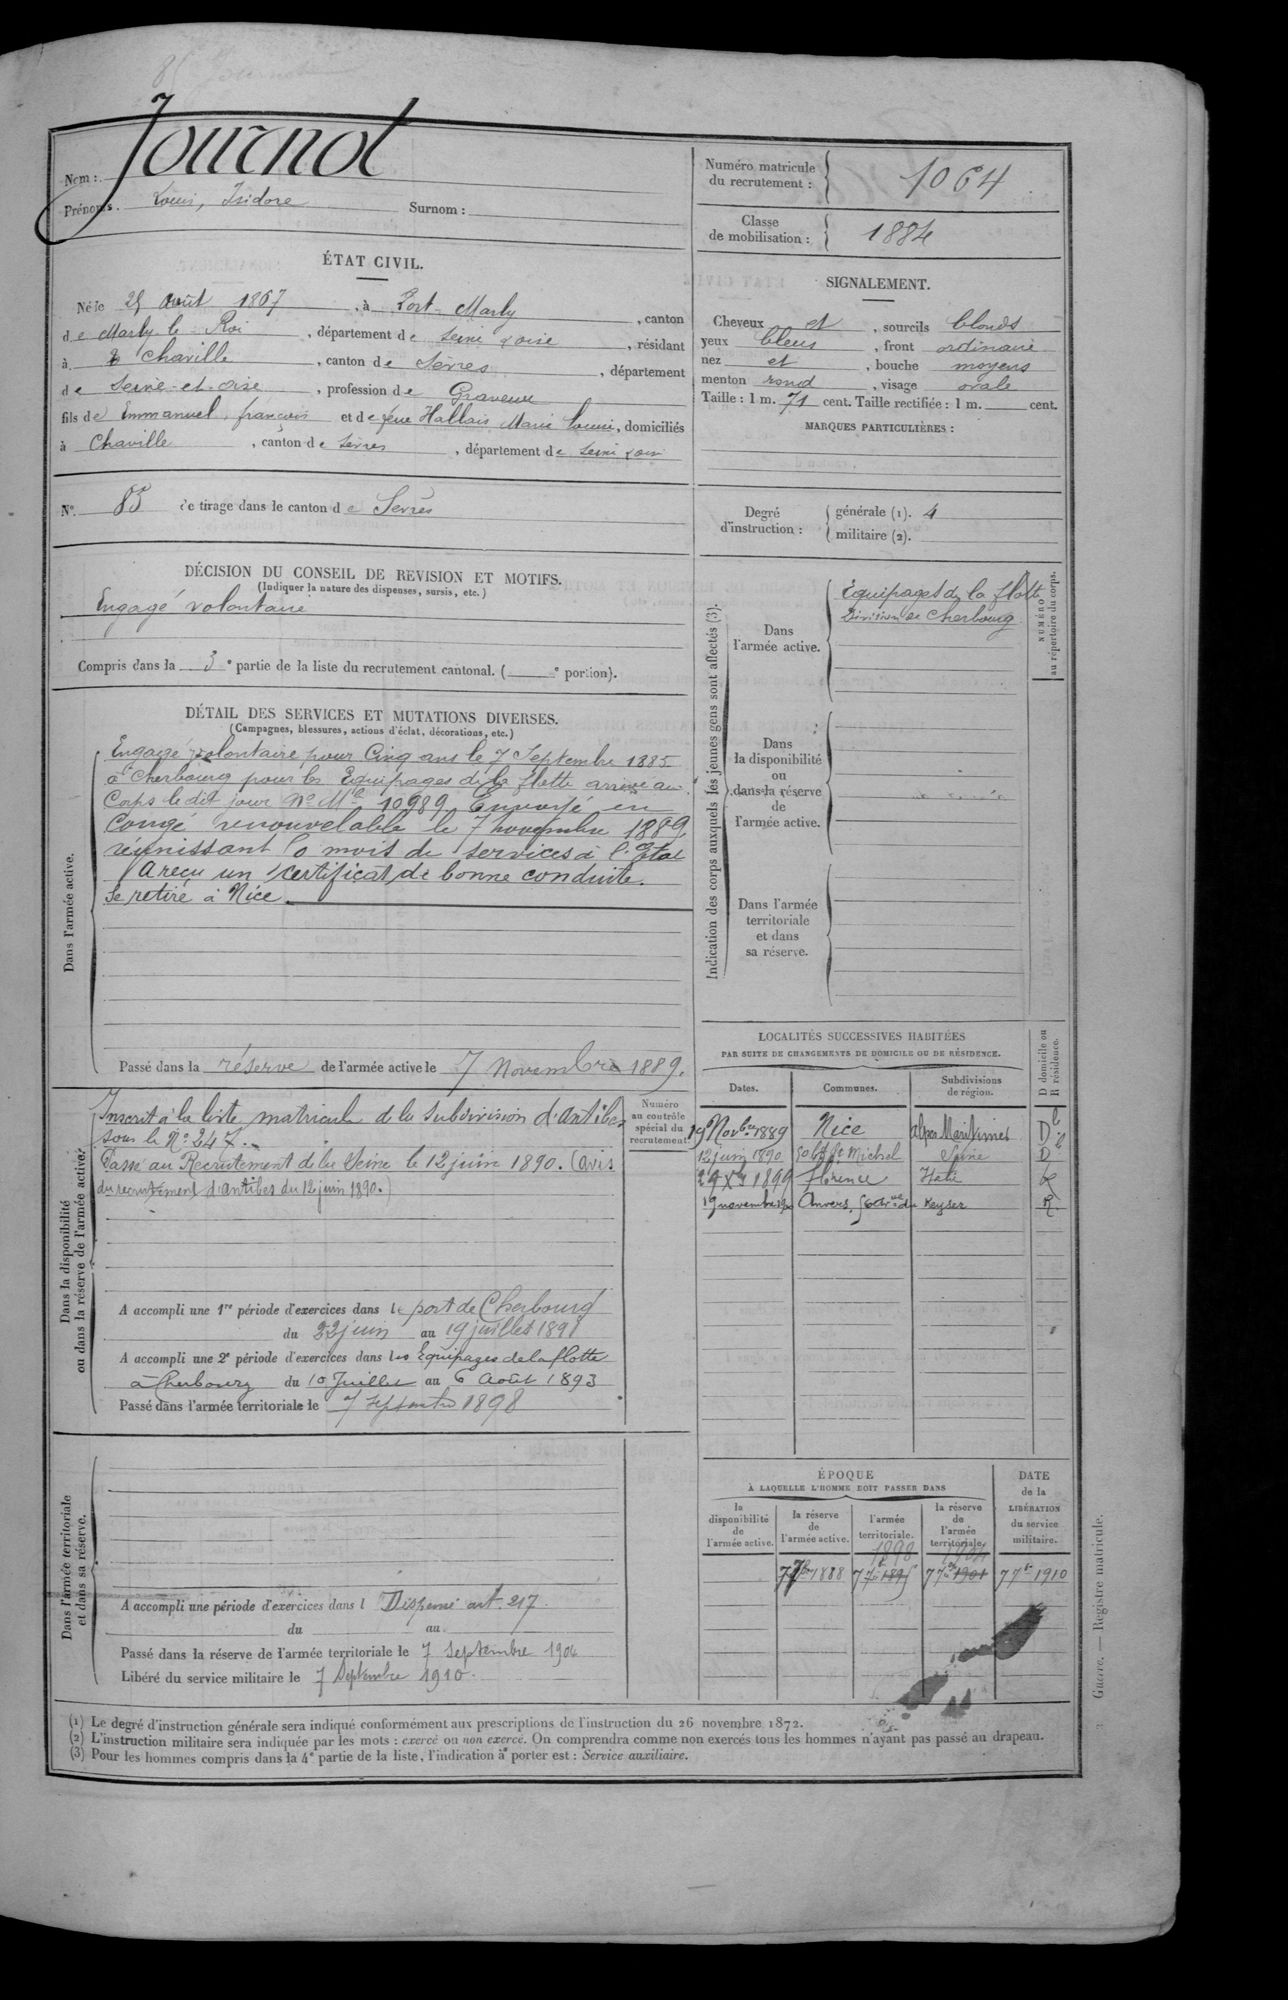 Nom : Journot
Prénoms. Louis, Isidore Surnom :
Numéro matricule du recrutement : 1064
Classe de mobilisation : 1884
ÉTAT CIVIL.
Né le 25 Août 1867, à Port-Marly, canton
de Marly le Roi, département de Seine & oise, résidant
à Chaville, canton de Sèvres, département
de Seine-et-oise, profession de Graveur
fils de Emmanuel, françois et de feue Hallais Marie Louise, domiciliés
à Chaville, canton de Sèvres, département de Seine & oise
SIGNALEMENT.
Cheveux et, sourcils blonds
yeux bleus, front ordinaire
nez et, bouche moyens
menton rond, visage ovale
Taille : 1 m. 71 cent. Taille rectifiée : 1 m. cent.
MARQUES PARTICULIÈRES :
N° 85 de tirage dans le canton de Sèvres
Degré d'instruction : générale (1). 4
militaire (2).
DÉCISION DU CONSEIL DE REVISION ET MOTIFS.
(Indiquer la nature des dispenses, sursis, etc.)
Engagé volontaire
Compris dans la 3e partie de la liste du recrutement cantonal. ( e portion).
DÉTAIL DES SERVICES ET MUTATIONS DIVERSES.
(Campagnes, blessures, actions d'éclat, décorations, etc.)
Dans l'armée active.
Engagé volontaire pour Cinq ans le 7 Septembre 1885
à Cherbourg pour les Equipages de la flotte arrivé au
Corps le dit jour No Mle 10989. Envoyé en
Congé renouvelable le 7 novembre 1889
réunissant 50 mois de services à l'Etat
A reçu un certificat de bonne conduite.
Se retire à Nice.
Passé dans la réserve de l'armée active le 7 Novembre 1889.
Indication des corps auxquels les jeunes gens sont affectés (3).
Dans l'armée active.
Equipages de la flotte
Division de Cherbourg
NUMÉRO au répertoire du corps.
Dans la disponibilité ou dans la réserve de l'armée active.
Dans l'armée territoriale et dans sa réserve.
Dans la disponibilité ou dans la réserve de l'armée active.
Inscrit à la liste matricule de la subdivision d'Antibes
sous le No 247.
Passé au Recrutement de la Seine le 12 juin 1890. (avis
du recrutement d'Antibes du 12 juin 1890.)
Numéro au contrôle spécial du recrutement.
A accompli une 1re période d'exercices dans le port de Cherbourg
du 22 juin au 19 juillet 1891
A accompli une 2e période d'exercices dans les Equipages de la flotte
à Cherbourg du 10 Juillet au 6 Août 1893
Passé dans l'armée territoriale le 7 septembre 1898
LOCALITÉS SUCCESSIVES HABITÉES
PAR SUITE DE CHANGEMENTS DE DOMICILE OU DE RÉSIDENCE.
Dates. Communes. Subdivisions de région. D domicile ou R résidence.
19 Novbre 1889 Nice Alpes Maritimes D
12 juin 1890 50 bd St Michel Seine D
Xbre 1899 Florence Italie
19 novembre Anvers, de Keyser R.
Dans l'armée territoriale et dans sa réserve.
A accompli une période d'exercices dans l Dispensé art. 217
du au
Passé dans la réserve de l'armée territoriale le 7 septembre 1904
Libéré du service militaire le 7 Septembre 1910.
ÉPOQUE
À LAQUELLE L'HOMME DOIT PASSER DANS
la disponibilité de l'armée active. la réserve de l'armée active. l'armée territoriale. la réserve de l'armée territoriale.
DATE de la LIBÉRATION du service militaire.
1898 1904
7 7bre 1888 7 7bre 1895 7 7bre 1901 7 7bre 1910
(1) Le degré d'instruction générale sera indiqué conformément aux prescriptions de l'instruction du 26 novembre 1872.
(2) L'instruction militaire sera indiquée par les mots : exercé ou non exercé. On comprendra comme non exercés tous les hommes n'ayant pas passé au drapeau.
(3) Pour les hommes compris dans la 4e partie de la liste, l'indication à porter est : Service auxiliaire.
Guerre. — Registre matricule.